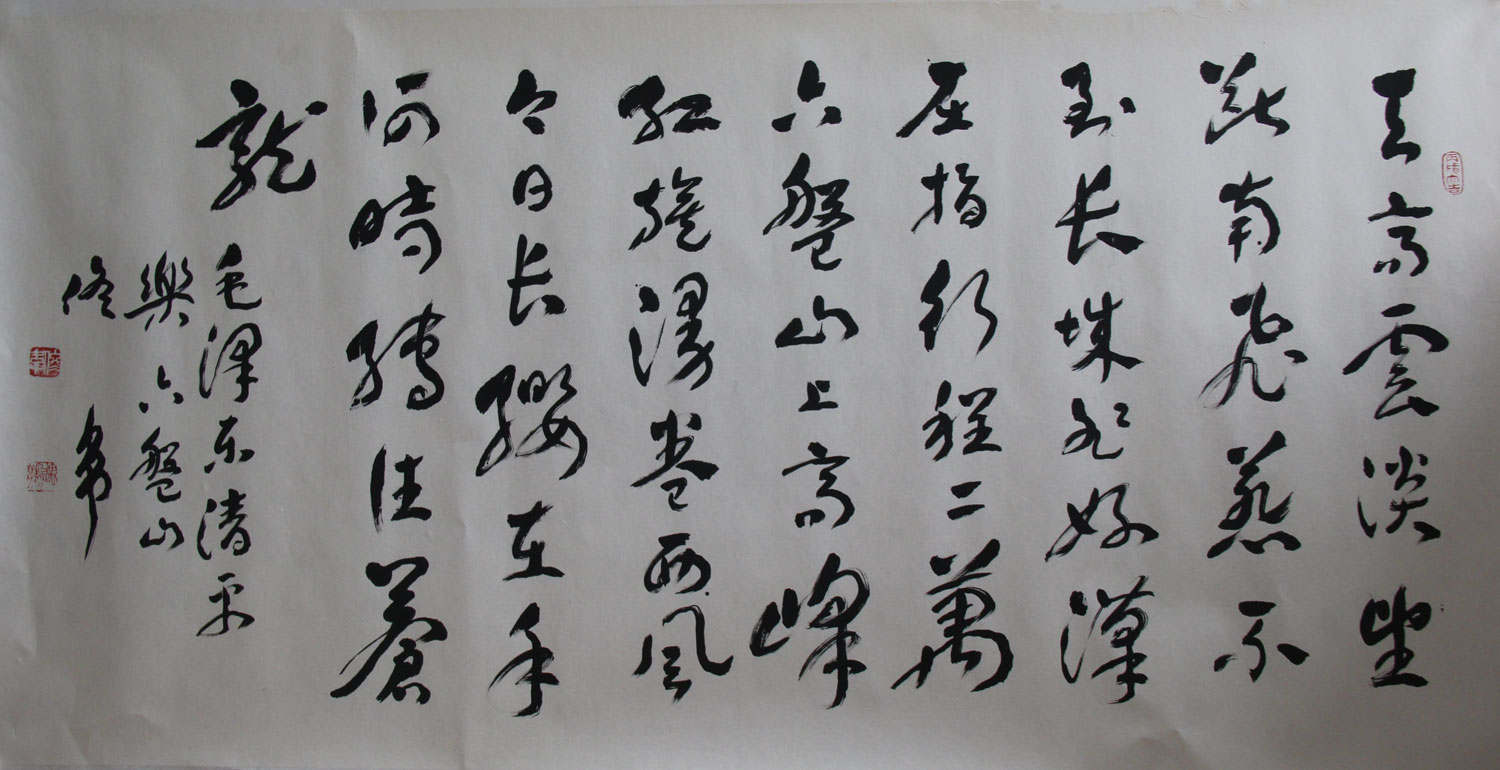 丙戌大吉
天高雲淡望
断南飛燕不
到长城非好漢
屈指行程二萬
六盤山上高峰
紅旗漫卷西風
今日长纓在手
何時縛住蒼
龍
毛澤东清平
樂六盤山
佟韦